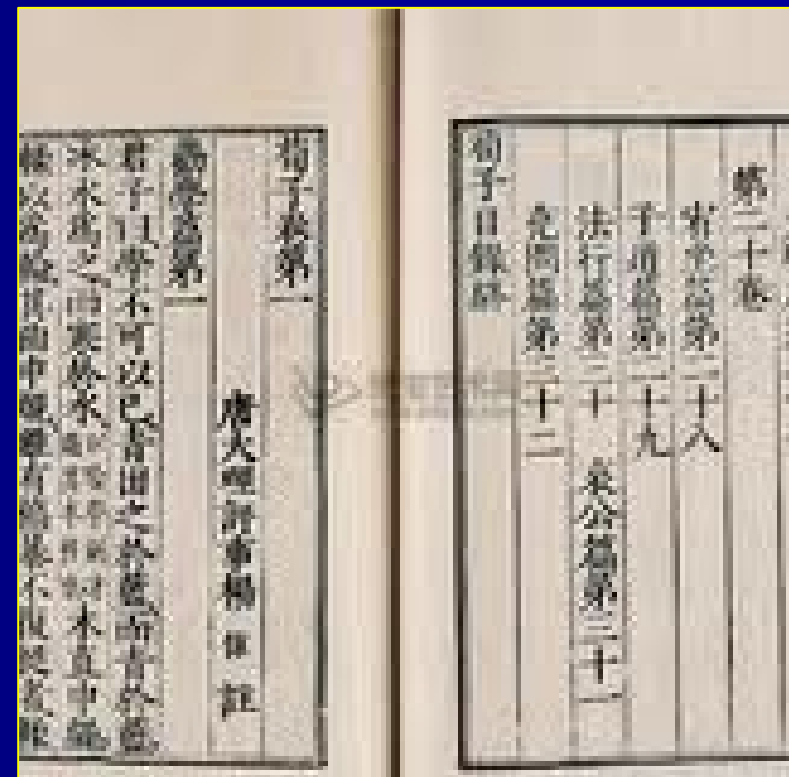 第二十卷
宥坐篇第二十八
子道篇第二十九
法行篇第三十 哀公篇第三十一
堯問篇第三十二
荀子目錄終
荀子卷第一
唐大理評事楊 倞 註
勸學篇第一
君子曰學不可以已青出之於藍而青於藍
冰水為之而寒於水 木直中繩
輮以為輪其曲中規雖有槁暴不復挺者輮